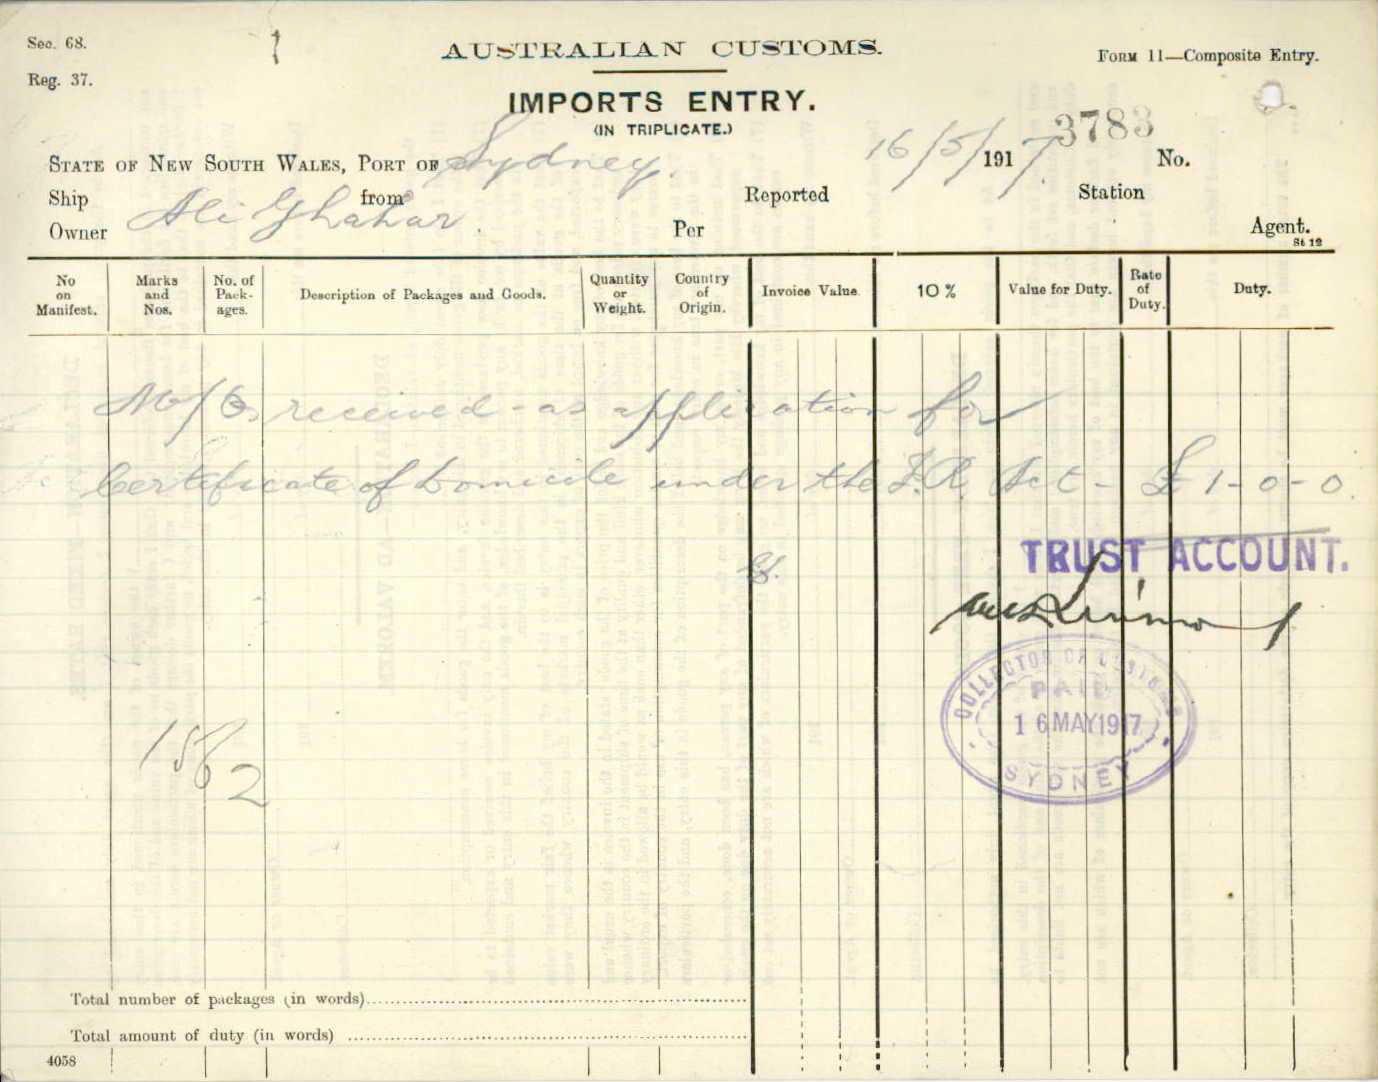 Sec. 68.
Reg. 37.
AUSTRALIAN CUSTOMS.
FORM 11—Composite Entry.
IMPORTS ENTRY.
(IN TRIPLICATE.)
3783
STATE OF NEW SOUTH WALES, PORT OF Sydney. 16/5/1917. No.
Ship from Reported Station
Owner Ali Ghahar. Per Agent.
St 12
No on Manifest.
Marks and Nos.
No. of Pack-ages.
Description of Packages and Goods.
Quantity or Weight.
Country of Origin.
Invoice Value.
10 %
Value for Duty.
Rate of Duty.
Duty.
received - as application for
Certificate of Domicile under the I.R. Act - £1-0-0.
TRUST ACCOUNT.
COLLECTOR OF CUSTOMS
PAID
16 MAY 1917
SYDNEY
Total number of packages (in words)
Total amount of duty (in words)
4058